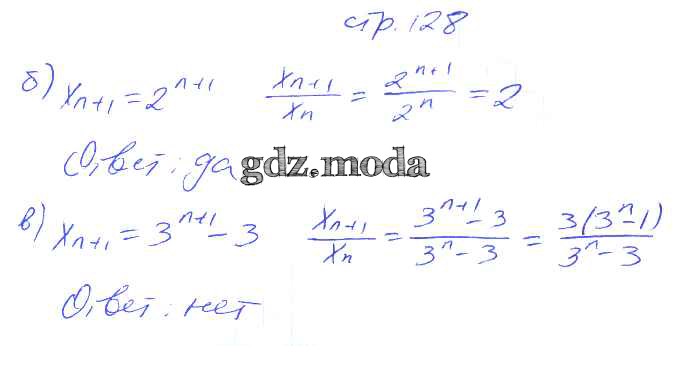 стр. 128
б) x_{n+1} = 2^{n+1} \frac{x_{n+1}}{x_n} = \frac{2^{n+1}}{2^n} = 2
Ответ: да gdz.moda
в) x_{n+1} = 3^{n+1} - 3 \frac{x_{n+1}}{x_n} = \frac{3^{n+1} - 3}{3^n - 3} = \frac{3(3^n - 1)}{3^n - 3}
Ответ: нет